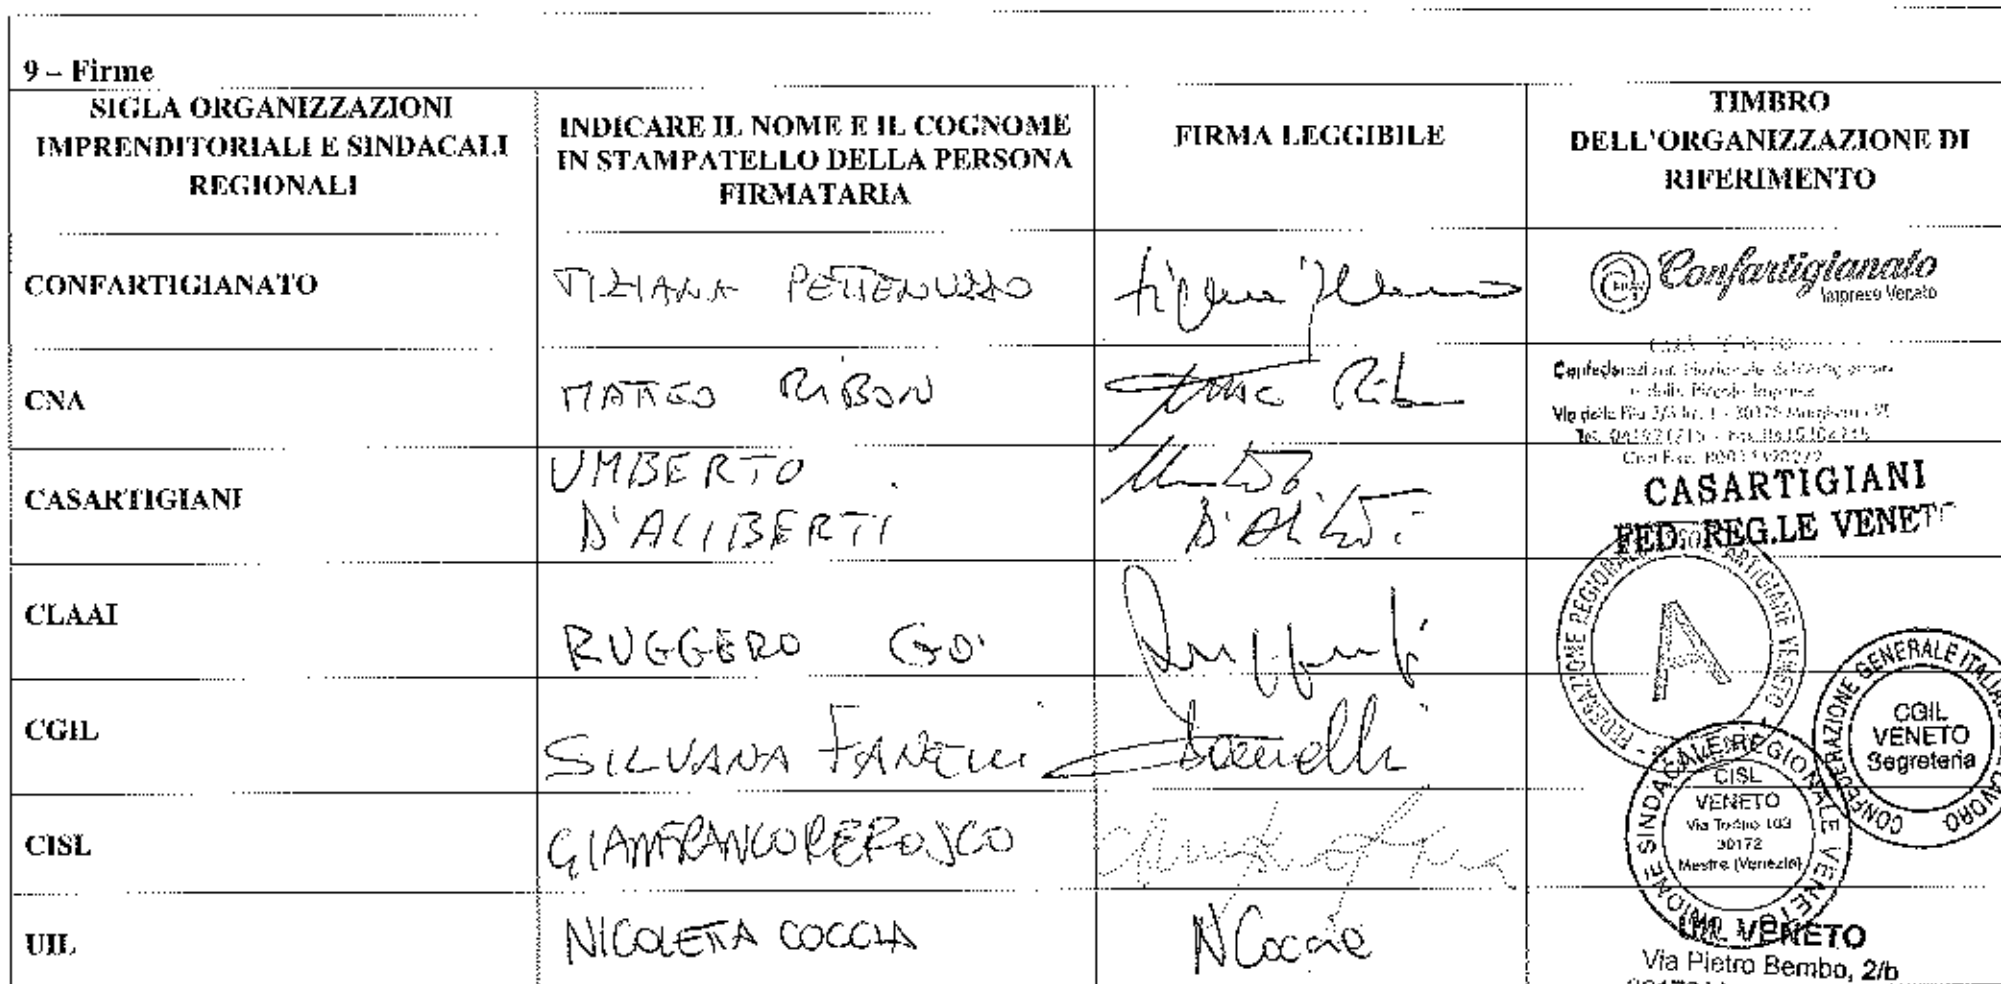 9 – Firme
SIGLA ORGANIZZAZIONI
IMPRENDITORIALI E SINDACALI
REGIONALI
INDICARE IL NOME E IL COGNOME
IN STAMPATELLO DELLA PERSONA
FIRMATARIA
FIRMA LEGGIBILE
TIMBRO
DELL'ORGANIZZAZIONE DI
RIFERIMENTO
CONFARTIGIANATO
TIZIANA PETTENUZZO
Confartigianato
Imprese Veneto
CNA
MATTEO RIBON
Confederazione Nazionale
CASARTIGIANI
UMBERTO
D'ALIBERTI
CASARTIGIANI
FED. REG.LE VENETO
CLAAI
RUGGERO GO'
FEDERAZIONE REGIONALE ARTIGIANE VENETO
A
CGIL
SILVANA FANELLI
Fanelli
CONFEDERAZIONE GENERALE ITALIANA LAVORO
CGIL
VENETO
Segreteria
CISL
GIANFRANCO REFOSCO
UNIONE SINDACALE REGIONALE VENETO
CISL
VENETO
30172
Mestre (Venezia)
UIL
NICOLETTA COCCIA
N Coccia
UIL VENETO
Via Pietro Bembo, 2/b